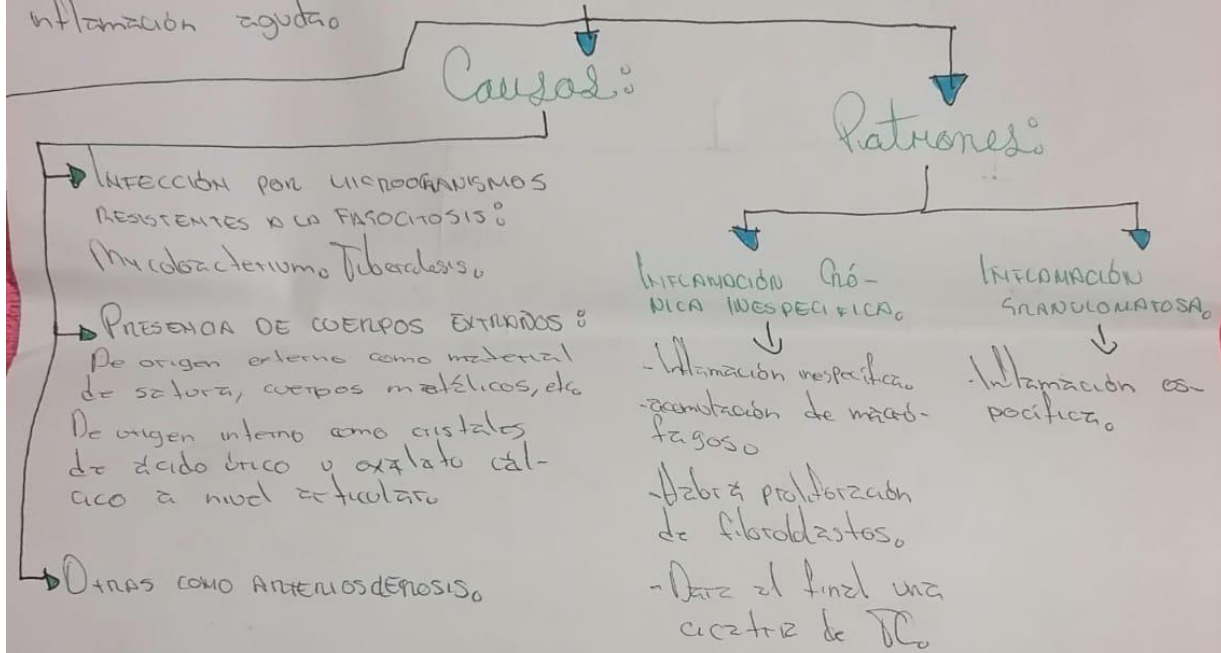 inflamación aguda.
Causas:
Patrones:
INFECCIÓN POR MICROORGANISMOS
RESISTENTES A LA FAGOCITOSIS:
Mycobacterium. Tiberculosis.
PRESENCIA DE CUERPOS EXTRAÑOS:
De origen externo como material
de sutura, cuerpos metélicos, etc.
De origen interno como cristales
de ácido úrico u oxalato cál-
cico a nivel articular.
OTRAS COMO ARTERIOSCLEROSIS.
INFLAMACIÓN CRÓ-
NICA INESPECIFICA.
- Inflamación inespecífica.
- acomulación de macró-
fagos.
- Habrá proliferación
de fibroblastos.
- Dara al final una
cicatriz de TC.
INFLAMACIÓN
GRANULOMATOSA.
- Inflamación es-
pecífica.